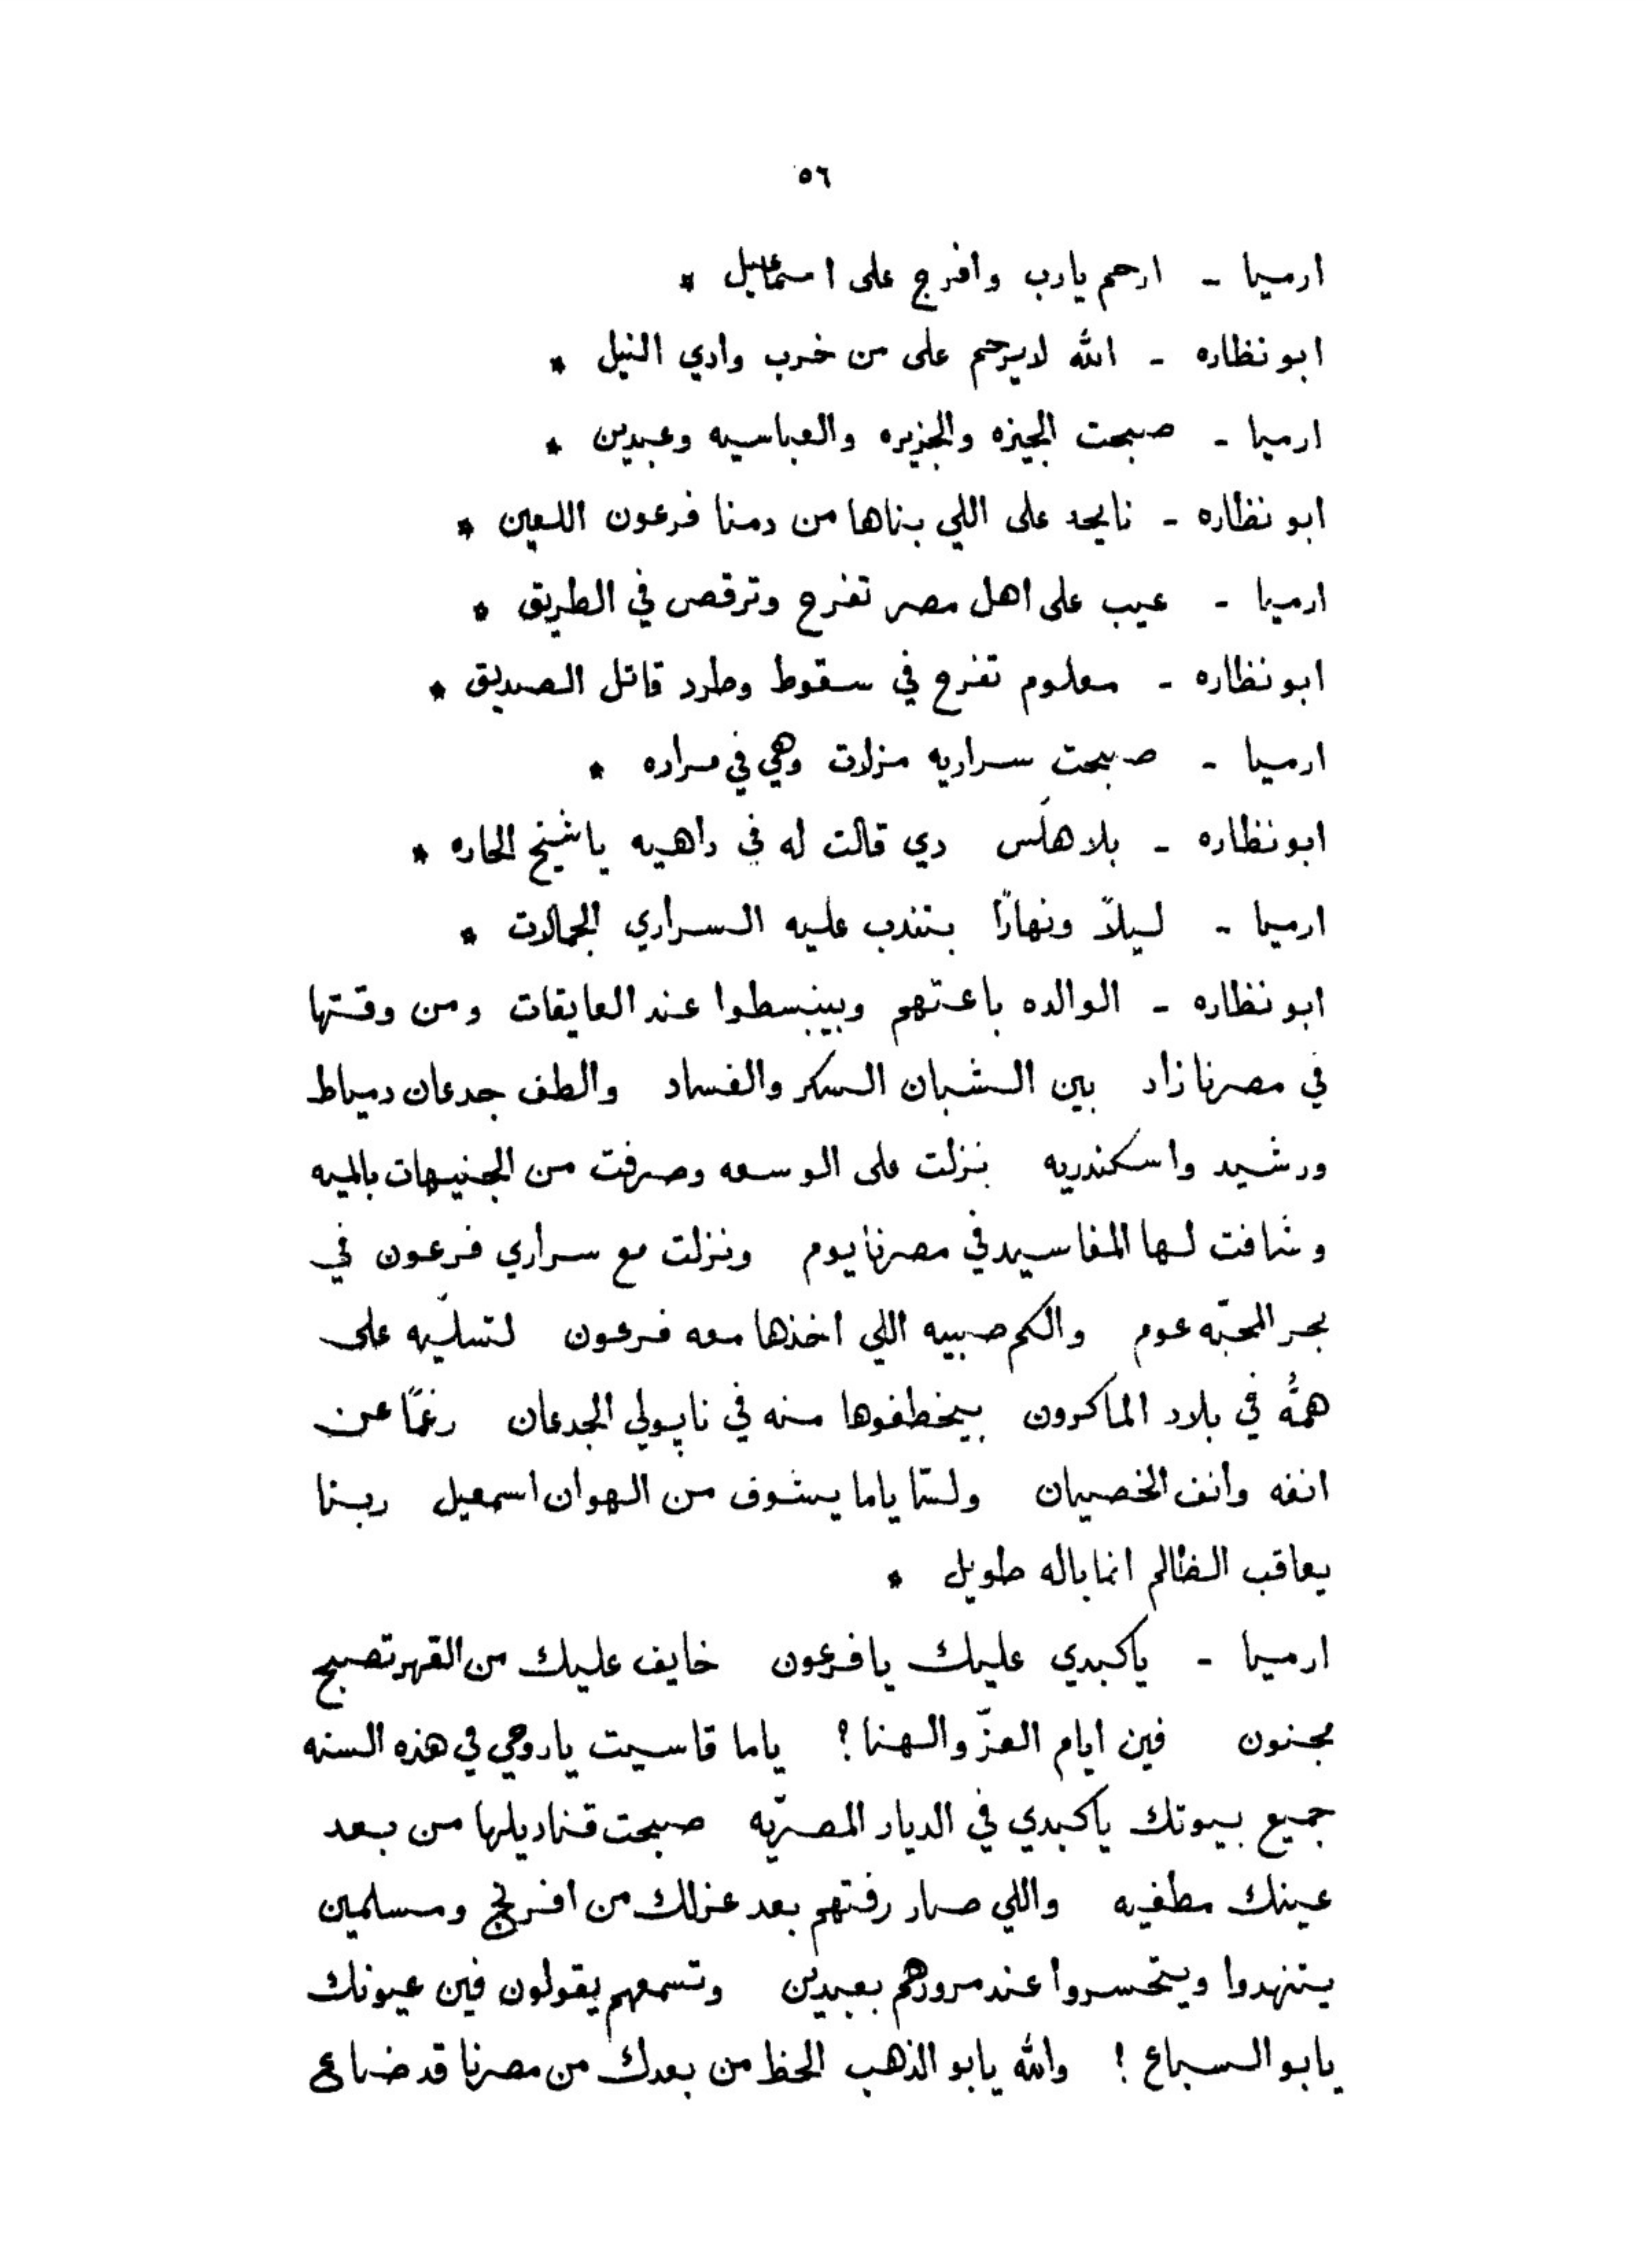 ٥٦
ارميا - ارحم يارب وافرج على اسماعيل *
ابو نظاره - الله لايرحم على من خرب وادي النيل *
ارميا - صبحت الجيزه والجزيره والعباسيه وعبدين *
ابو نظاره - نايحه على اللي بناها من دمنا فرعون اللعين *
ارميا - عيب على اهل مصر تفرح وترقص في الطريق *
ابو نظاره - معلوم تفرح في سقوط وطرد قاتل الصديق *
ارميا - صبحت سراريه مزلات وهي في مراره *
ابو نظاره - بلا هلَس دي قالت له في داهيه ياشيخ الحاره *
ارميا - ليلاً ونهارًا بتندب عليه السراري الجمالات *
ابو نظاره - الوالده باعتهم وبينبسطوا عند العايقات ومن وقتها
في مصرنا زاد بين الشبان السكر والفساد والطف جدعان دمياط
ورشيد واسكندريه نزلت على الوسعه وصرفت من الجنيهات بالميه
وشافت لها المفاسيد في مصرنا يوم ونزلت مع سراري فرعون في
بحر المحبّه عوم والكم صبيه اللي اخذها معه فرعون لتسلّيه على
همُّه في بلاد الماكرون بيخطفوها منه في ناپولي الجدعان رغمًا عن
انفه وانف الخصيان ولسّا ياما يشوف من الهوان اسمعيل ربنا
يعاقب الظالم انما باله طويل *
ارميا - ياكبدي عليك يافرعون خايف عليك من القهر تصبح
مجنون فين ايام العزّ والهنا؟ ياما قاسيت ياروحي في هذه السنه
جميع بيوتك ياكبدي في الديار المصريّه صبحت قناديلها من بعد
عينك مطفيه واللي صار رفتهم بعد عزلك من افرنج ومسلمين
يتنهدوا ويتحسروا عند مرورهم بعبدين وتسمعهم يقولون فين عيونك
يابو السباع! والله يابو الذهب الحظ من بعدك من مصرنا قد ضاع